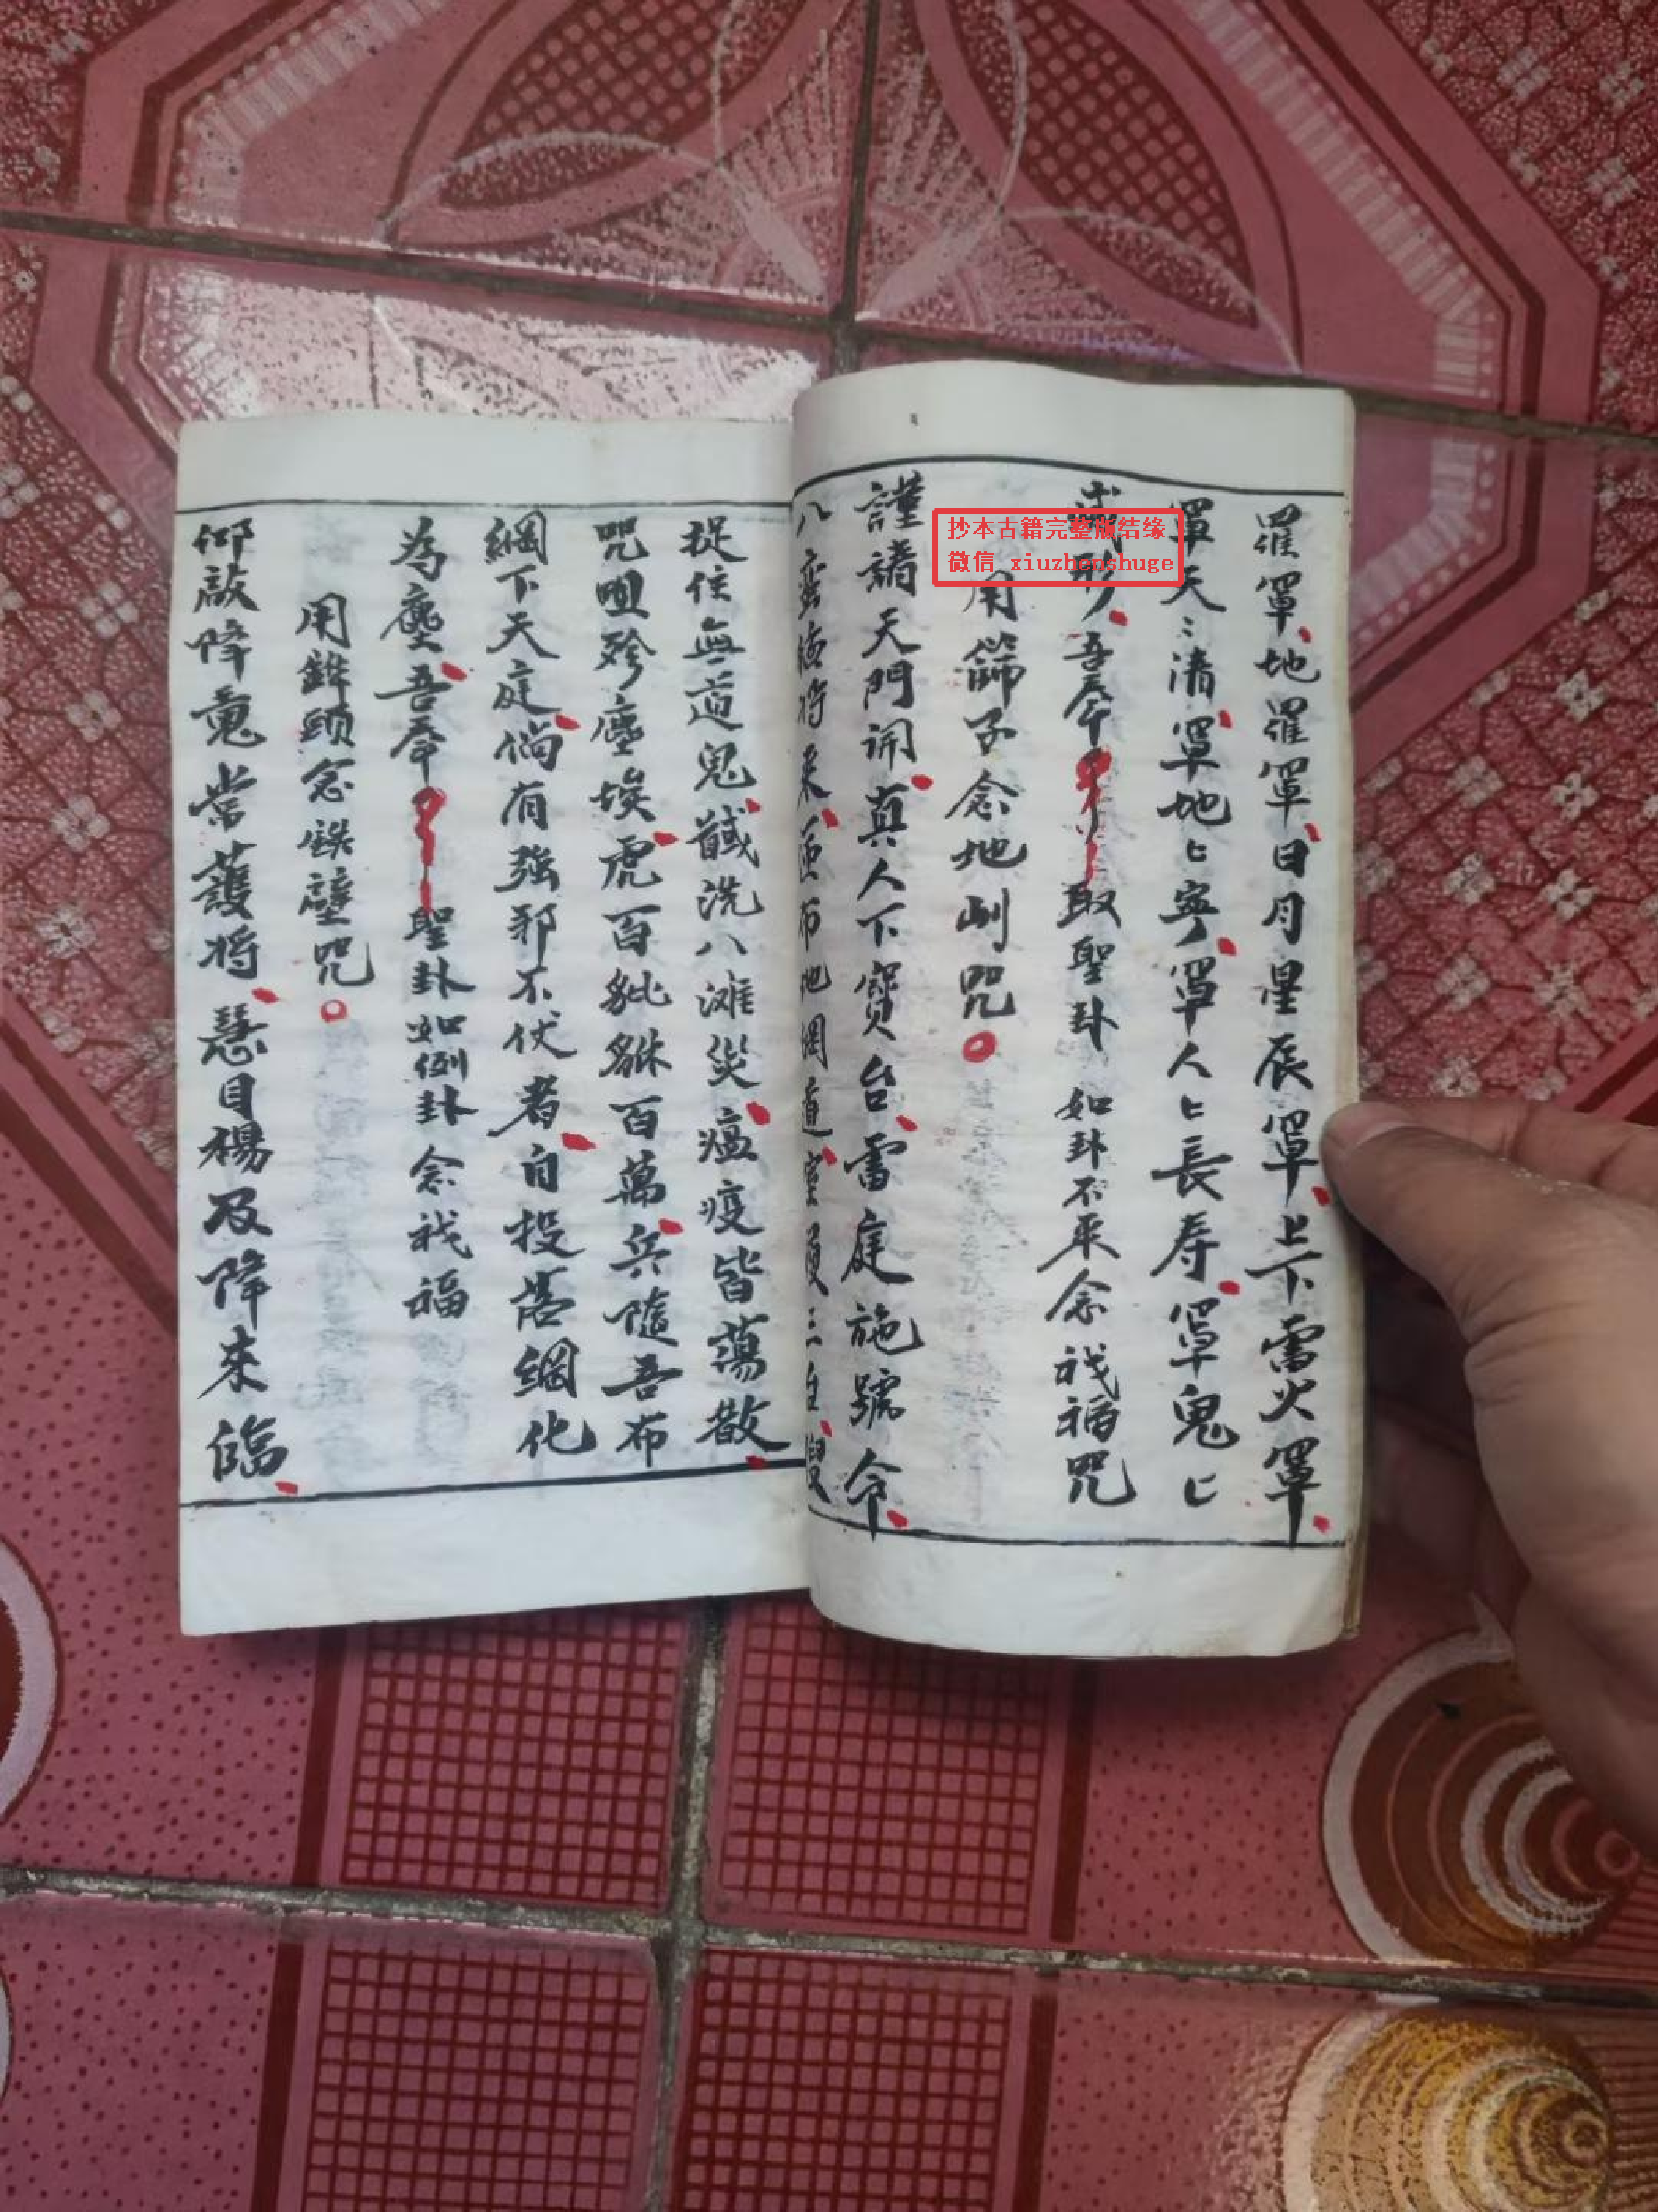 羅罩地羅罩日月星辰罩上下雷火罩
罩天〻清罩地匕寧罩人匕長寿罩鬼匕
滅形吾奉取聖卦如卦不來念祝福咒
用篩子念地咒
謹請天門開真人下寶台雷庭施號令
八蛮将來布地網道三台
捉住無道鬼洗八滩災瘟疫皆蕩散
咒咀殄塵埃虎百貔貅百萬兵隨吾布
網下天庭倘有強邪不伏者自投落網化
為塵吾奉聖卦如例卦念祝福
用鏵頭念鉄壁咒
仰啟降鬼常護将慧目楊及降來臨
抄本古籍完整版结缘
微信 xiuzhenshuge